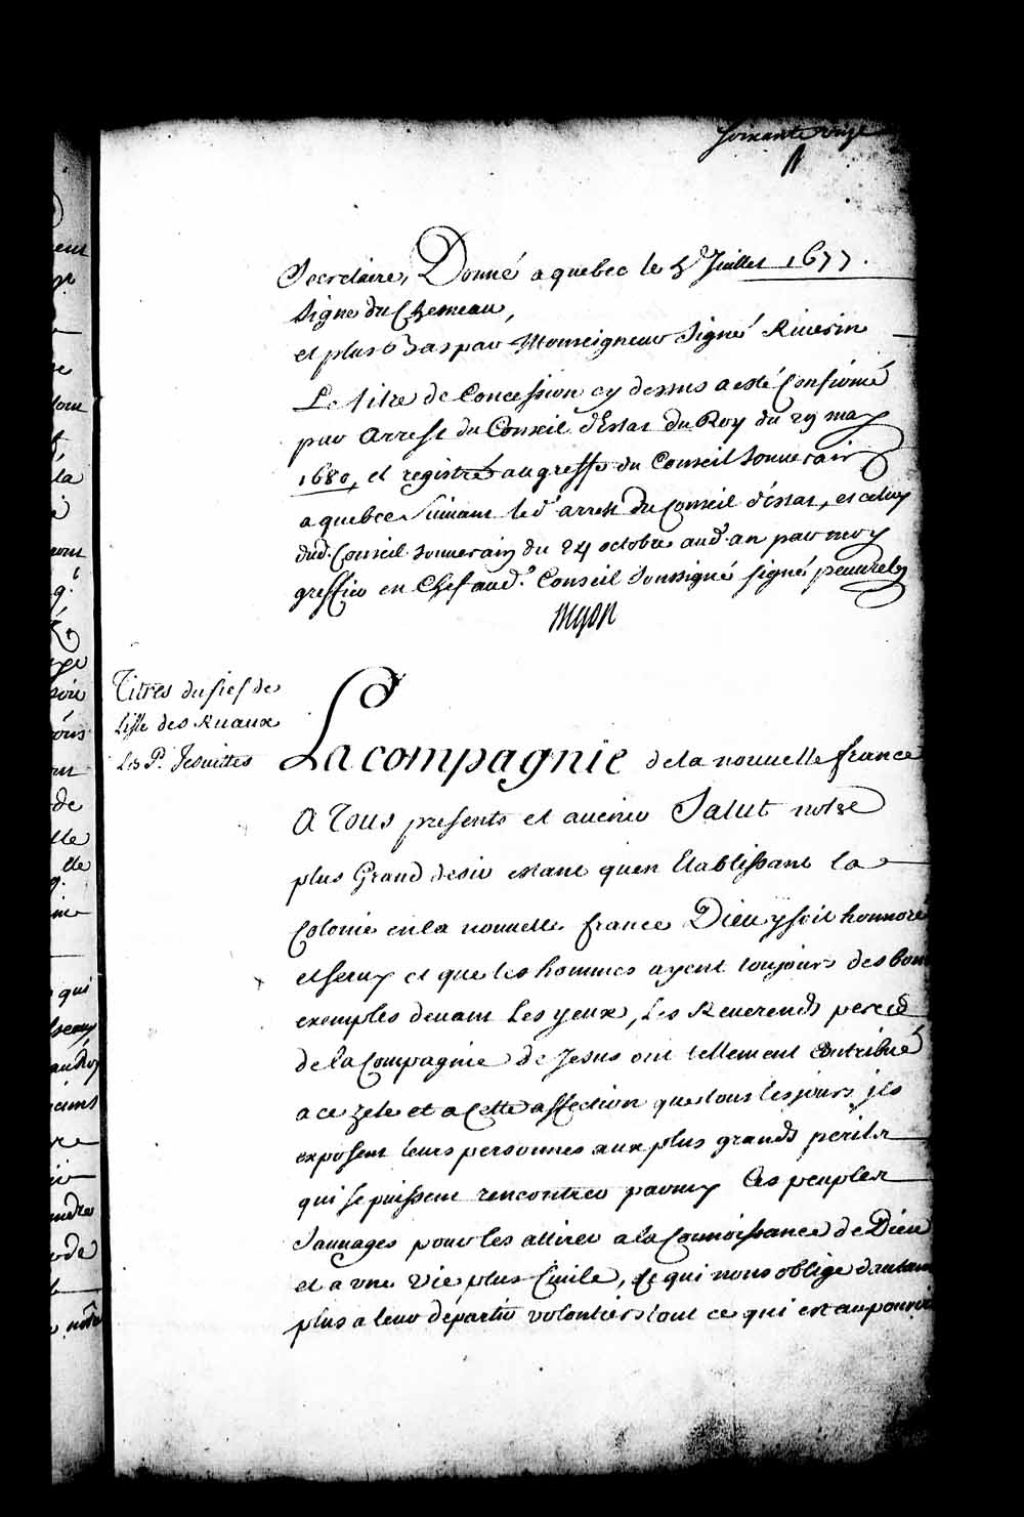 soixante onze
Secretaire, Donné a quebec le 5e Juillet 1677.
Signe du Chesneau,
et plus bas par Monseigneur Signé Riverin
Le titre de Concession cy dessus a esté Confirmé
par Arrest du Conseil d'Estat Du Roy du 29 may
1680, et registré au greffe du Conseil Souverain
a quebec Suivant led. arrest du Conseil d'éstat, et celuy
dud. Conseil souverain du 24 octobre aud. an par moy
greffier en Chef aud. Conseil Soussigné signé peuvret
Titres du fief de
Lisle des Ruaux
Les P. Jesuittes
La compagnie de la nouvelle france
A Tous presents et avenir Salut notre
plus Grand desir estant quen Etablissant la
Colonie en la nouvelle france Dieu y soit honnoré
et servy et que les hommes ayent toujours des bons
exemples devant Les yeux, Les Reverends peres
de la Compagnie de Jesus ont tellement Contribué
a ce zele et a Cette affection que tous les jours jls
exposent leurs personnes aux plus grands perils
qui se puissent rencontrer parmy Ces peuples
Sauvages pour les attirer a la Connoissance de Dieu
et a une Vie plus Civile, Ce qui nous oblige dautant
plus a leur départir volontiers tout ce qui est au pouvoir